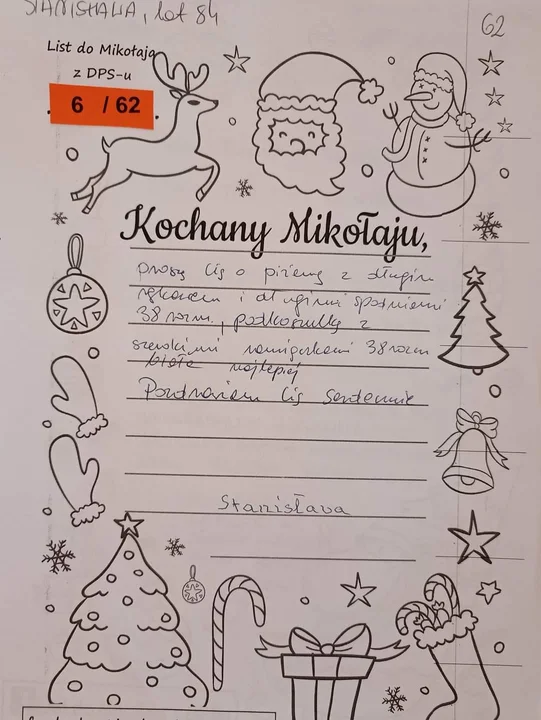 STANISŁAWA, lat 84
62
List do Mikołaja
z DPS-u
6 / 62
Kochany Mikołaju,
proszę Cię o piżamę z długim
rękawem i długimi spodniami
38 rozm., podkoszulkę z
szerokimi ramiączkami 38 rozm
białe najlepiej
Pozdrawiam Cię serdecznie
Stanisława